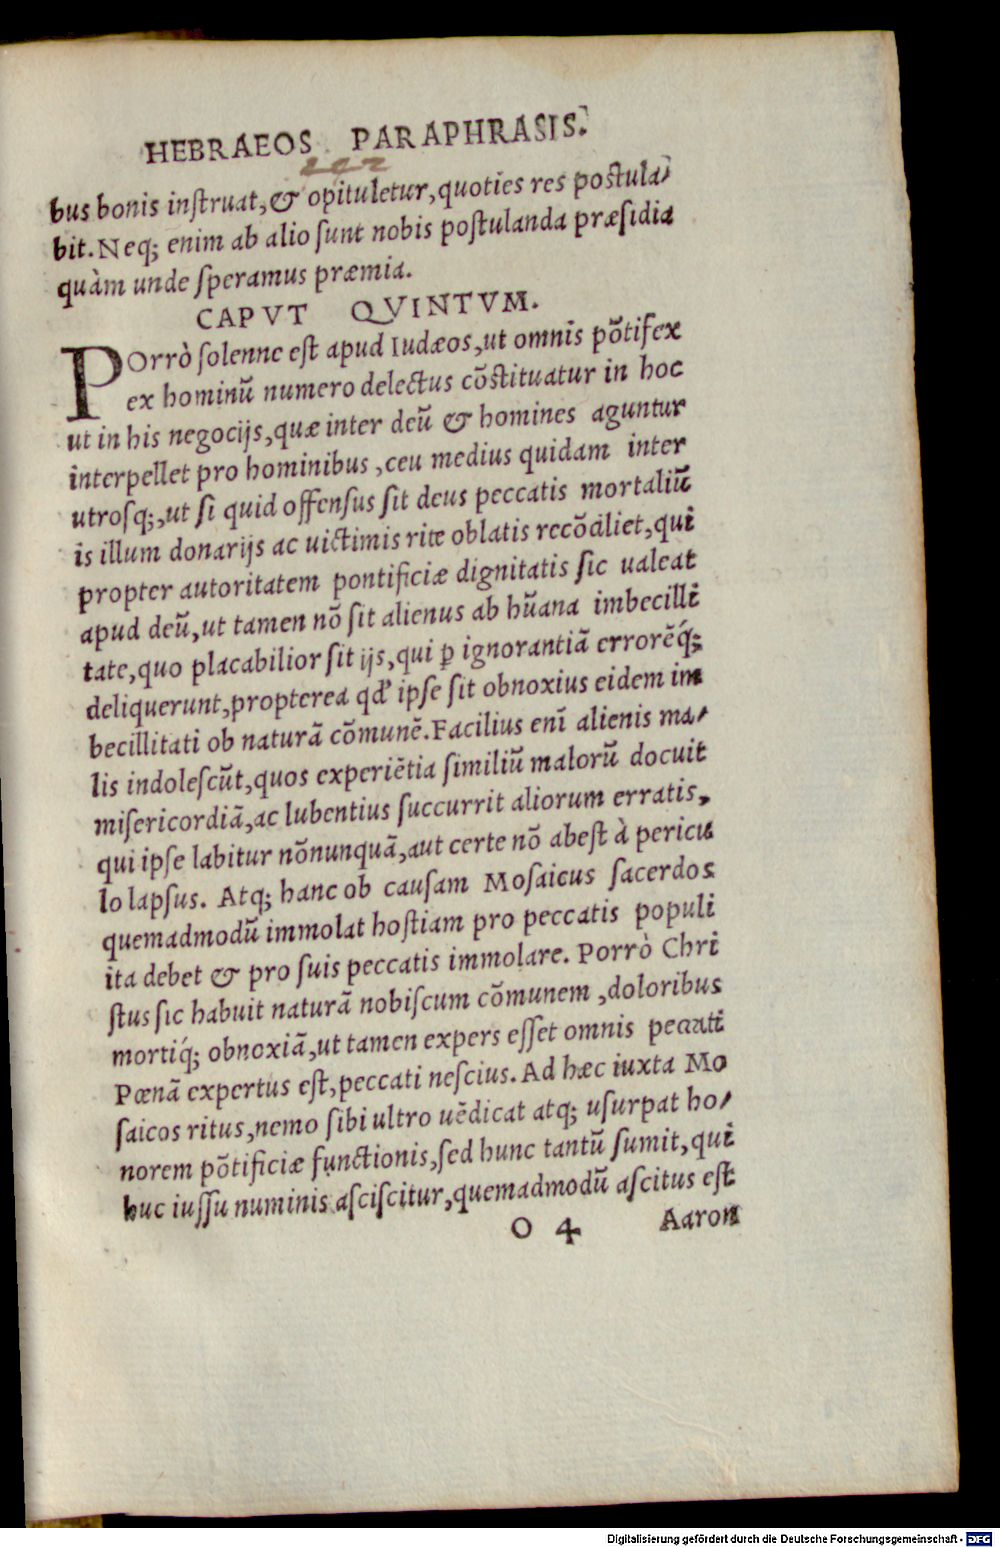 HEBRAEOS PARAPHRASIS.
bus bonis inſtruat, & opituletur, quoties res poſtula/
bit. Neq; enim ab alio ſunt nobis poſtulanda præſidia
quàm unde ſperamus præmia.
CAPVT QVINTVM.
POrrò ſolenne eſt apud Iudæos, ut omnis põtifex
ex hominũ numero delectus cõſtituatur in hoc
ut in his negocijs, quæ inter deũ & homines aguntur
interpellet pro hominibus, ceu medius quidam inter
utroſq;, ut ſi quid offenſus ſit deus peccatis mortaliũ
is illum donarijs ac uictimis rite oblatis recõciliet, qui
propter autoritatem pontificiæ dignitatis ſic ualeat
apud deũ, ut tamen nõ ſit alienus ab hũana imbecilli
tate, quo placabilior ſit ijs, qui ꝑ ignorantiã errorẽq́;
deliquerunt, propterea qd' ipſe ſit obnoxius eidem im
becillitati ob naturã cõmunẽ. Facilius enĩ alienis ma/
lis indoleſcũt, quos experiẽtia ſimiliũ malorũ docuit
miſericordiã, ac lubentius ſuccurrit aliorum erratis,
qui ipſe labitur nõnunquã, aut certe nõ abeſt à pericu
lo lapſus. Atq; hanc ob cauſam Moſaicus ſacerdos
quemadmodũ immolat hoſtiam pro peccatis populi
ita debet & pro ſuis peccatis immolare. Porrò Chri
ſtus ſic habuit naturã nobiſcum cõmunem, doloribus
mortiq́; obnoxiã, ut tamen expers eſſet omnis peccati
Pœnã expertus eſt, peccati neſcius. Ad hæc iuxta Mo
ſaicos ritus, nemo ſibi ultro uẽdicat atq; uſurpat ho/
norem põtificiæ functionis, ſed hunc tantũ ſumit, qui
huc iuſſu numinis aſciſcitur, quemadmodũ aſcitus eſt
O 4 Aaron
Digitalisierung gefördert durch die Deutsche Forschungsgemeinschaft - DFG